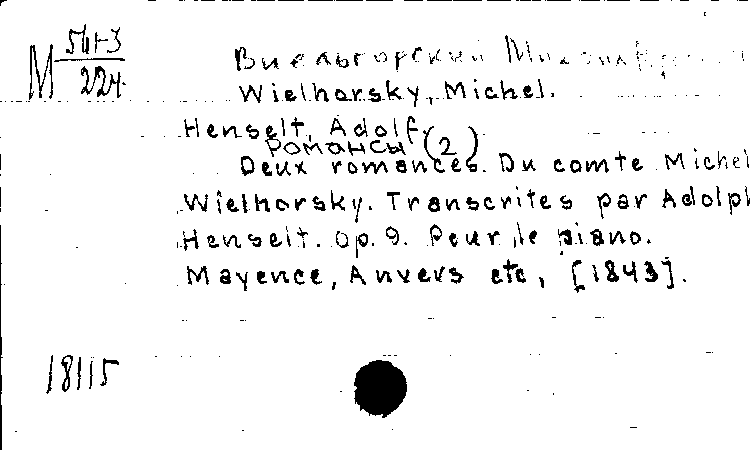 М 561-3
224
Виельгорский Михаил
Wielhorsky, Michel.
Henselt, Adolf.
Романсы (2)
Deux romances. Du comte Michel
Wielhorsky. Transcrites par Adolph
Henselt. Op. 9. Pour le piano.
Mayence, Anvers etc, [1843].
18115